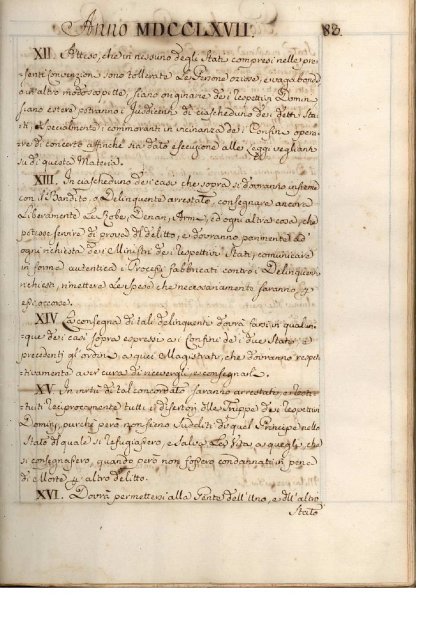 Anno MDCCLXVII. 83.
XII. Atteso, che in nessuno degli Stati compresi nelle pre-
senti convenzioni sono tollerate Le Persone oziose, e vagabonde
o in altro modo sospette, siano originarie de i respettivi Domini
siano estere potranno i Giusdicenti di ciascheduno dei detti Sta-
ti, e specialmente i commoranti in vicinanza de i Confini opera-
re di concerto affinchè sia dato esecuzione alle Leggi veglianti
su di questa Materia.
XIII. In ciascheduno dei casi che sopra si dovranno insieme
con il Bandito, o Delinquente arrestato, consegnare ancora
Liberamente Le Robe, Denari, Armi, ed ogni altra cosa, che
potesse servire di prova del delitto, e dovranno parimente ad
ogni richiesta dei Ministri dei respettivi Stati, comunicare
in forma autentica i Processi fabbricati contro i Delinquenti
richiesti, rimettere Le Spese che necessariamente saranno
occorse.
XIV La consegna di tali delinquenti dovrà farsi in qualun-
que dei casi sopra espressi ai Confini de i due Stati,
precedenti gl'avvisi a quei Magistrati, che dovranno respet-
tivamente aver cura di riceverli, e consegnarli.
XV. In virtù di tal concordato saranno arrestati, e resti-
tuiti reciprocamente tutti i disertori delle Truppe dei respettivi
Dominj, purchè però non sieno Sudditi di quel Principe nello
Stato del quale si refugiassero, e salva La Vita a quegli, che
si consegnassero, quando però non fossero condannati in pena
di Morte p altro delitto.
XVI. Dovrà permettersi alla Gente dell'Uno, e dell'altro
Stato